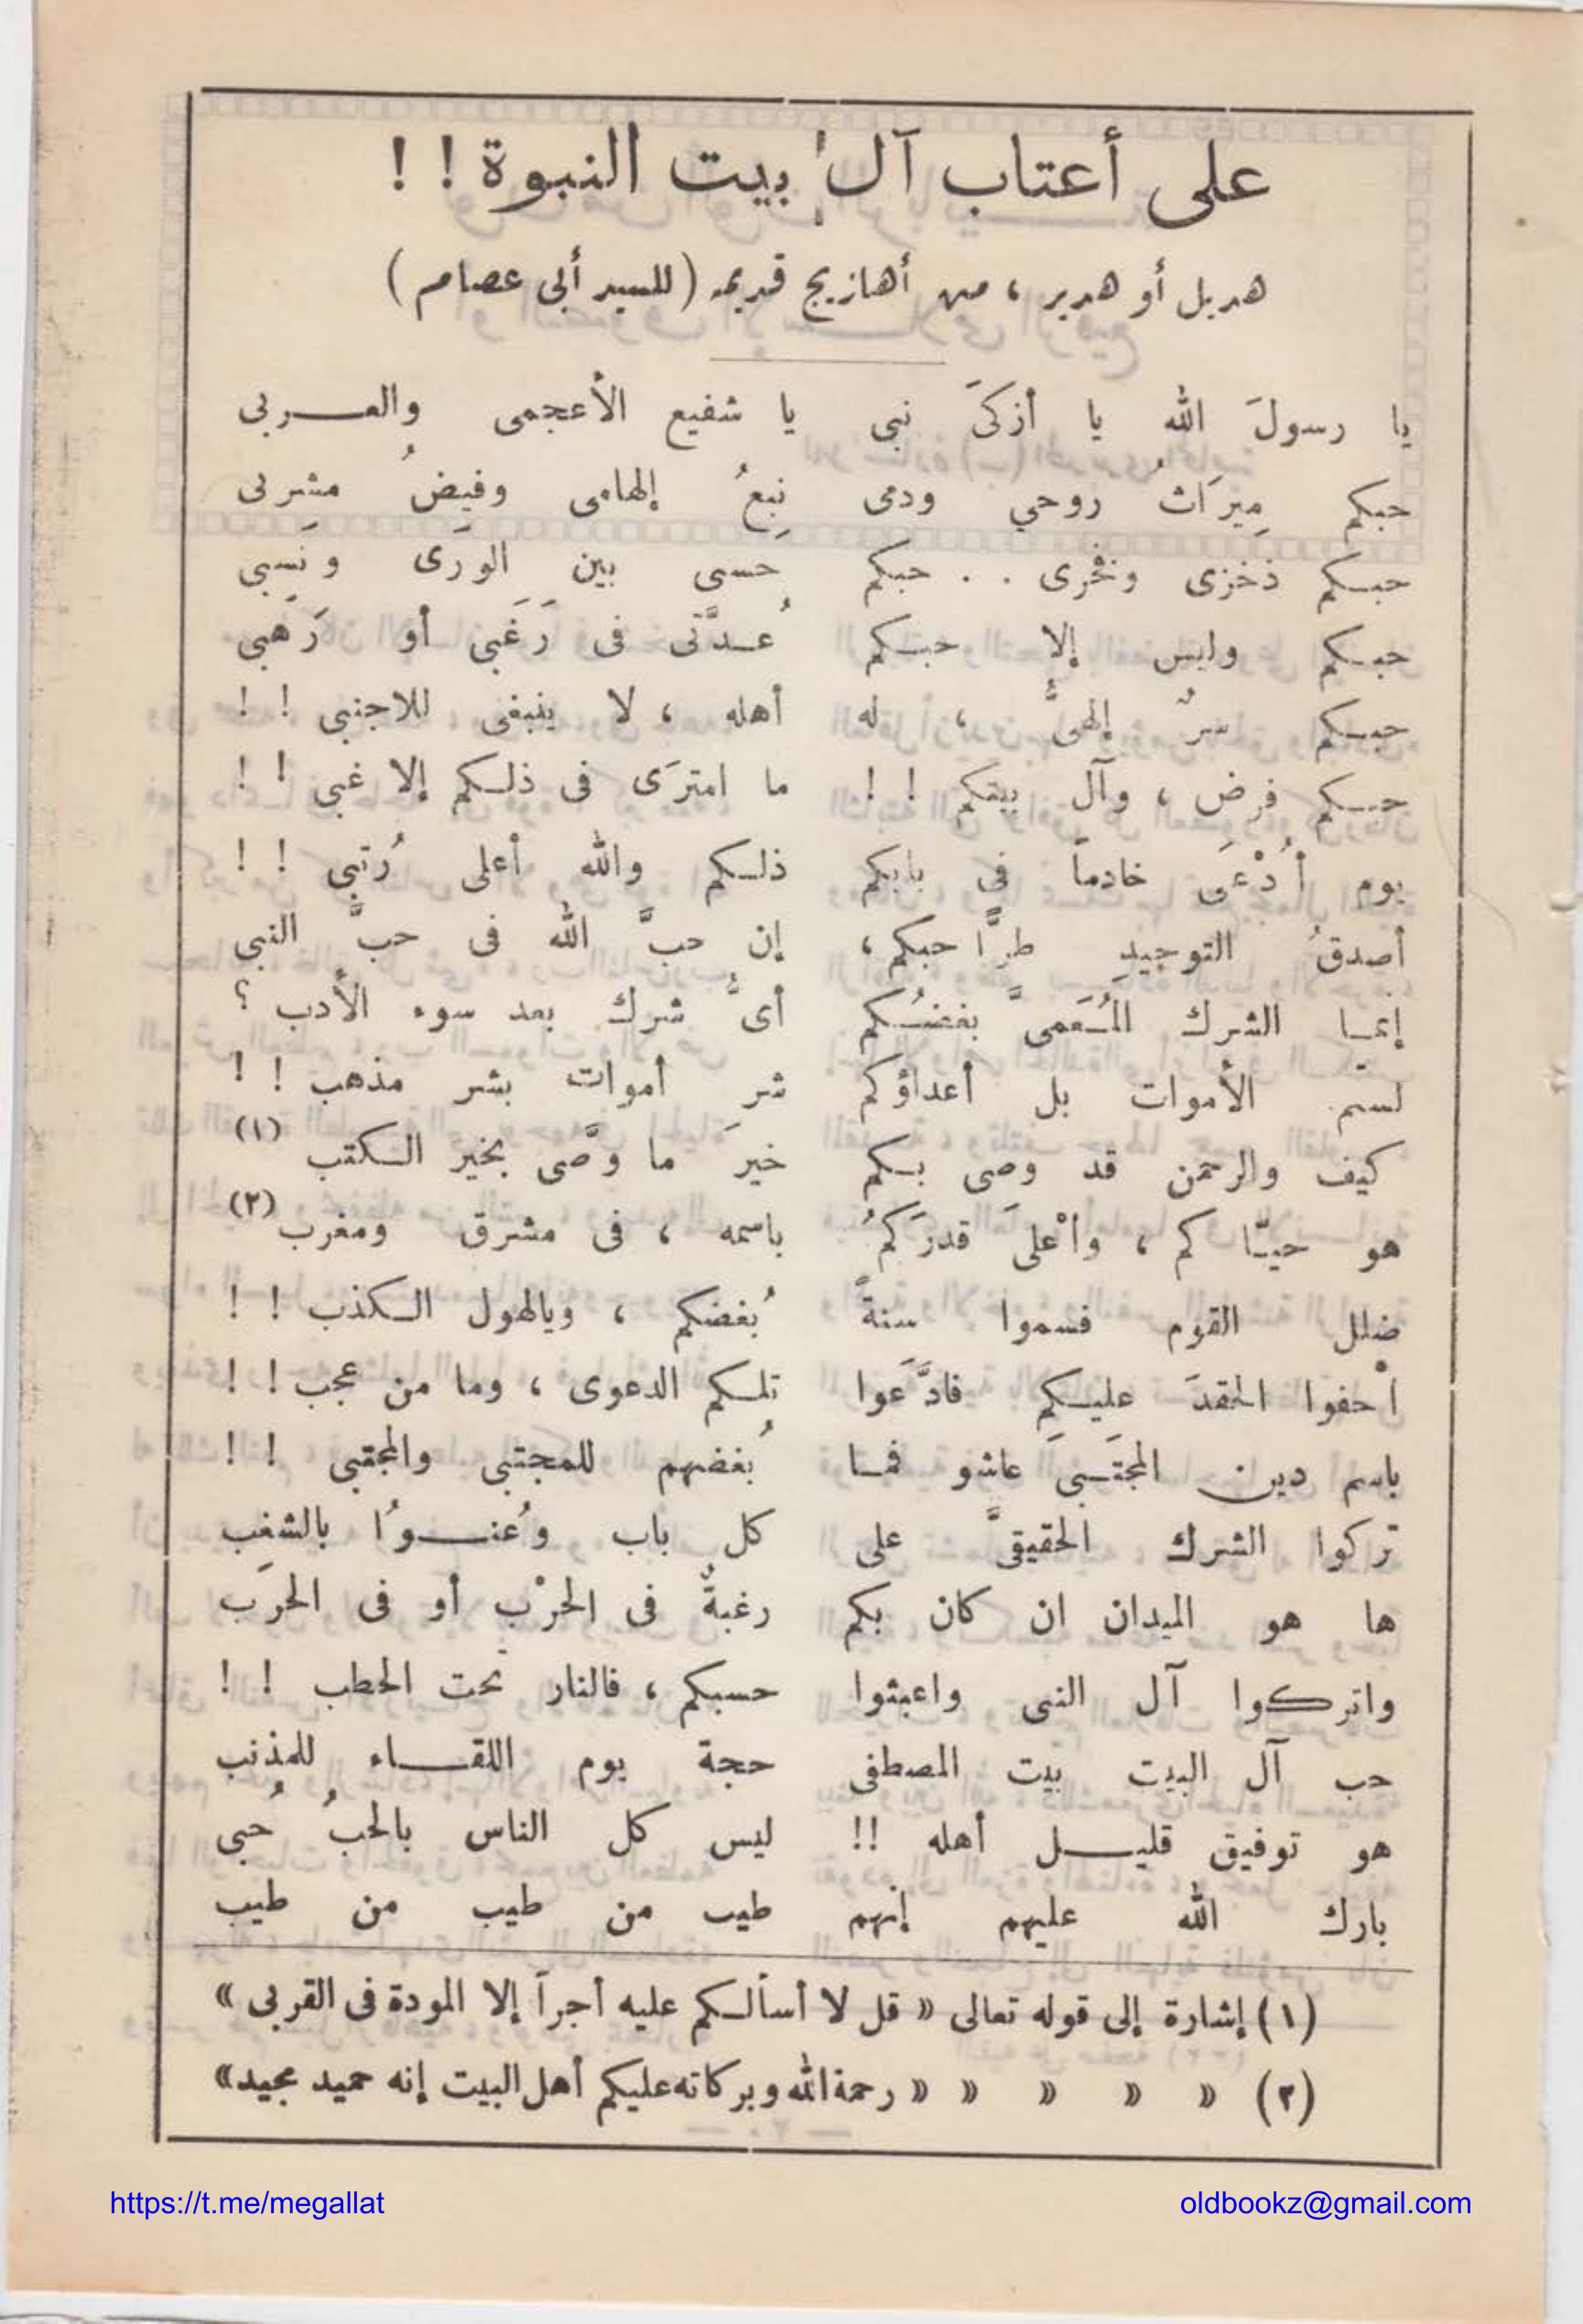 على أعتاب آل بيت النبوة ! !
هديل أو هدير ، من أهازيج قديمة ( للسيد أبى عصام )
يا رسولَ الله يا أزكىَ نبى يا شفيع الأعجمى والعربى
حبكم مِيرَاثُ روحي ودمى نبعُ إلهامى وفيضُ مشربى
حبكم ذخرى وفخرى . . حبكم حَسى بين الورَى ونَسبى
حبكم وليس إلا حبكم عُدَّتى فى رَغَبى أو رَهَبى
حبكم سرٌ إلهىٌّ ، له أهله ، لا ينبغى للاجنبى ! !
حبكم فرض ، وآل بيتكم ! ! ما امترَى فى ذلكم إلا غبى ! !
يوم أُدْعَى خادماً فى بابكم ذلكم والله أعلى رُتبى ! !
أصدقُ التوحيدِ طرًّا حبكم ، إن حبَّ الله فى حبَّ النبى
إنما الشرك المُعَمىَّ بغضُكم أىُّ شرك بعد سوء الأدب ؟
لستم الأموات بل أعداؤكم شر أموات بشر مذهب ! !
كيف والرحمن قد وصى بكم خيرَ ما وَّصى بخير الكتب (١)
هو حيّا كم ، وأعْلىَ قدرَكمُ باسمه ، فى مشرق ومغرب (٢)
ضلل القوم فسموا سنةً بُغضكم ، ويالهول الكذب ! !
أخفوا الحقدَ عليكم فادَّعَوا تلكم الدعوى ، وما من عجب ! !
باسم دين المجتَبىَ عاشو فما بُغضهم للمجتبى والمجتبى ! !
تركوا الشرك الحقيقىَّ على كل باب وعُنوُا بالشغَب
ها هو الميدان ان كان بكم رغبةٌ فى الحرْب أو فى الحرَب
واتركوا آل النبى واعبثوا حسبكم ، فالنار تحت الحطب ! !
حب آل البيت بيت المصطفى حجة يوم اللقاء للمذنب
هو توفيق قليل أهله !! ليس كل الناس بالحبُ حُبى
بارك الله عليهم إنهم طيب من طيب من طيب
(١) إشارة إلى قوله تعالى « قل لا أسألكم عليه أجراً إلا المودة فى القربى »
(٢) » » » » « رحمة الله وبركاته عليكم أهل البيت إنه حميد مجيد»
https://t.me/megallat
oldbookz@gmail.com